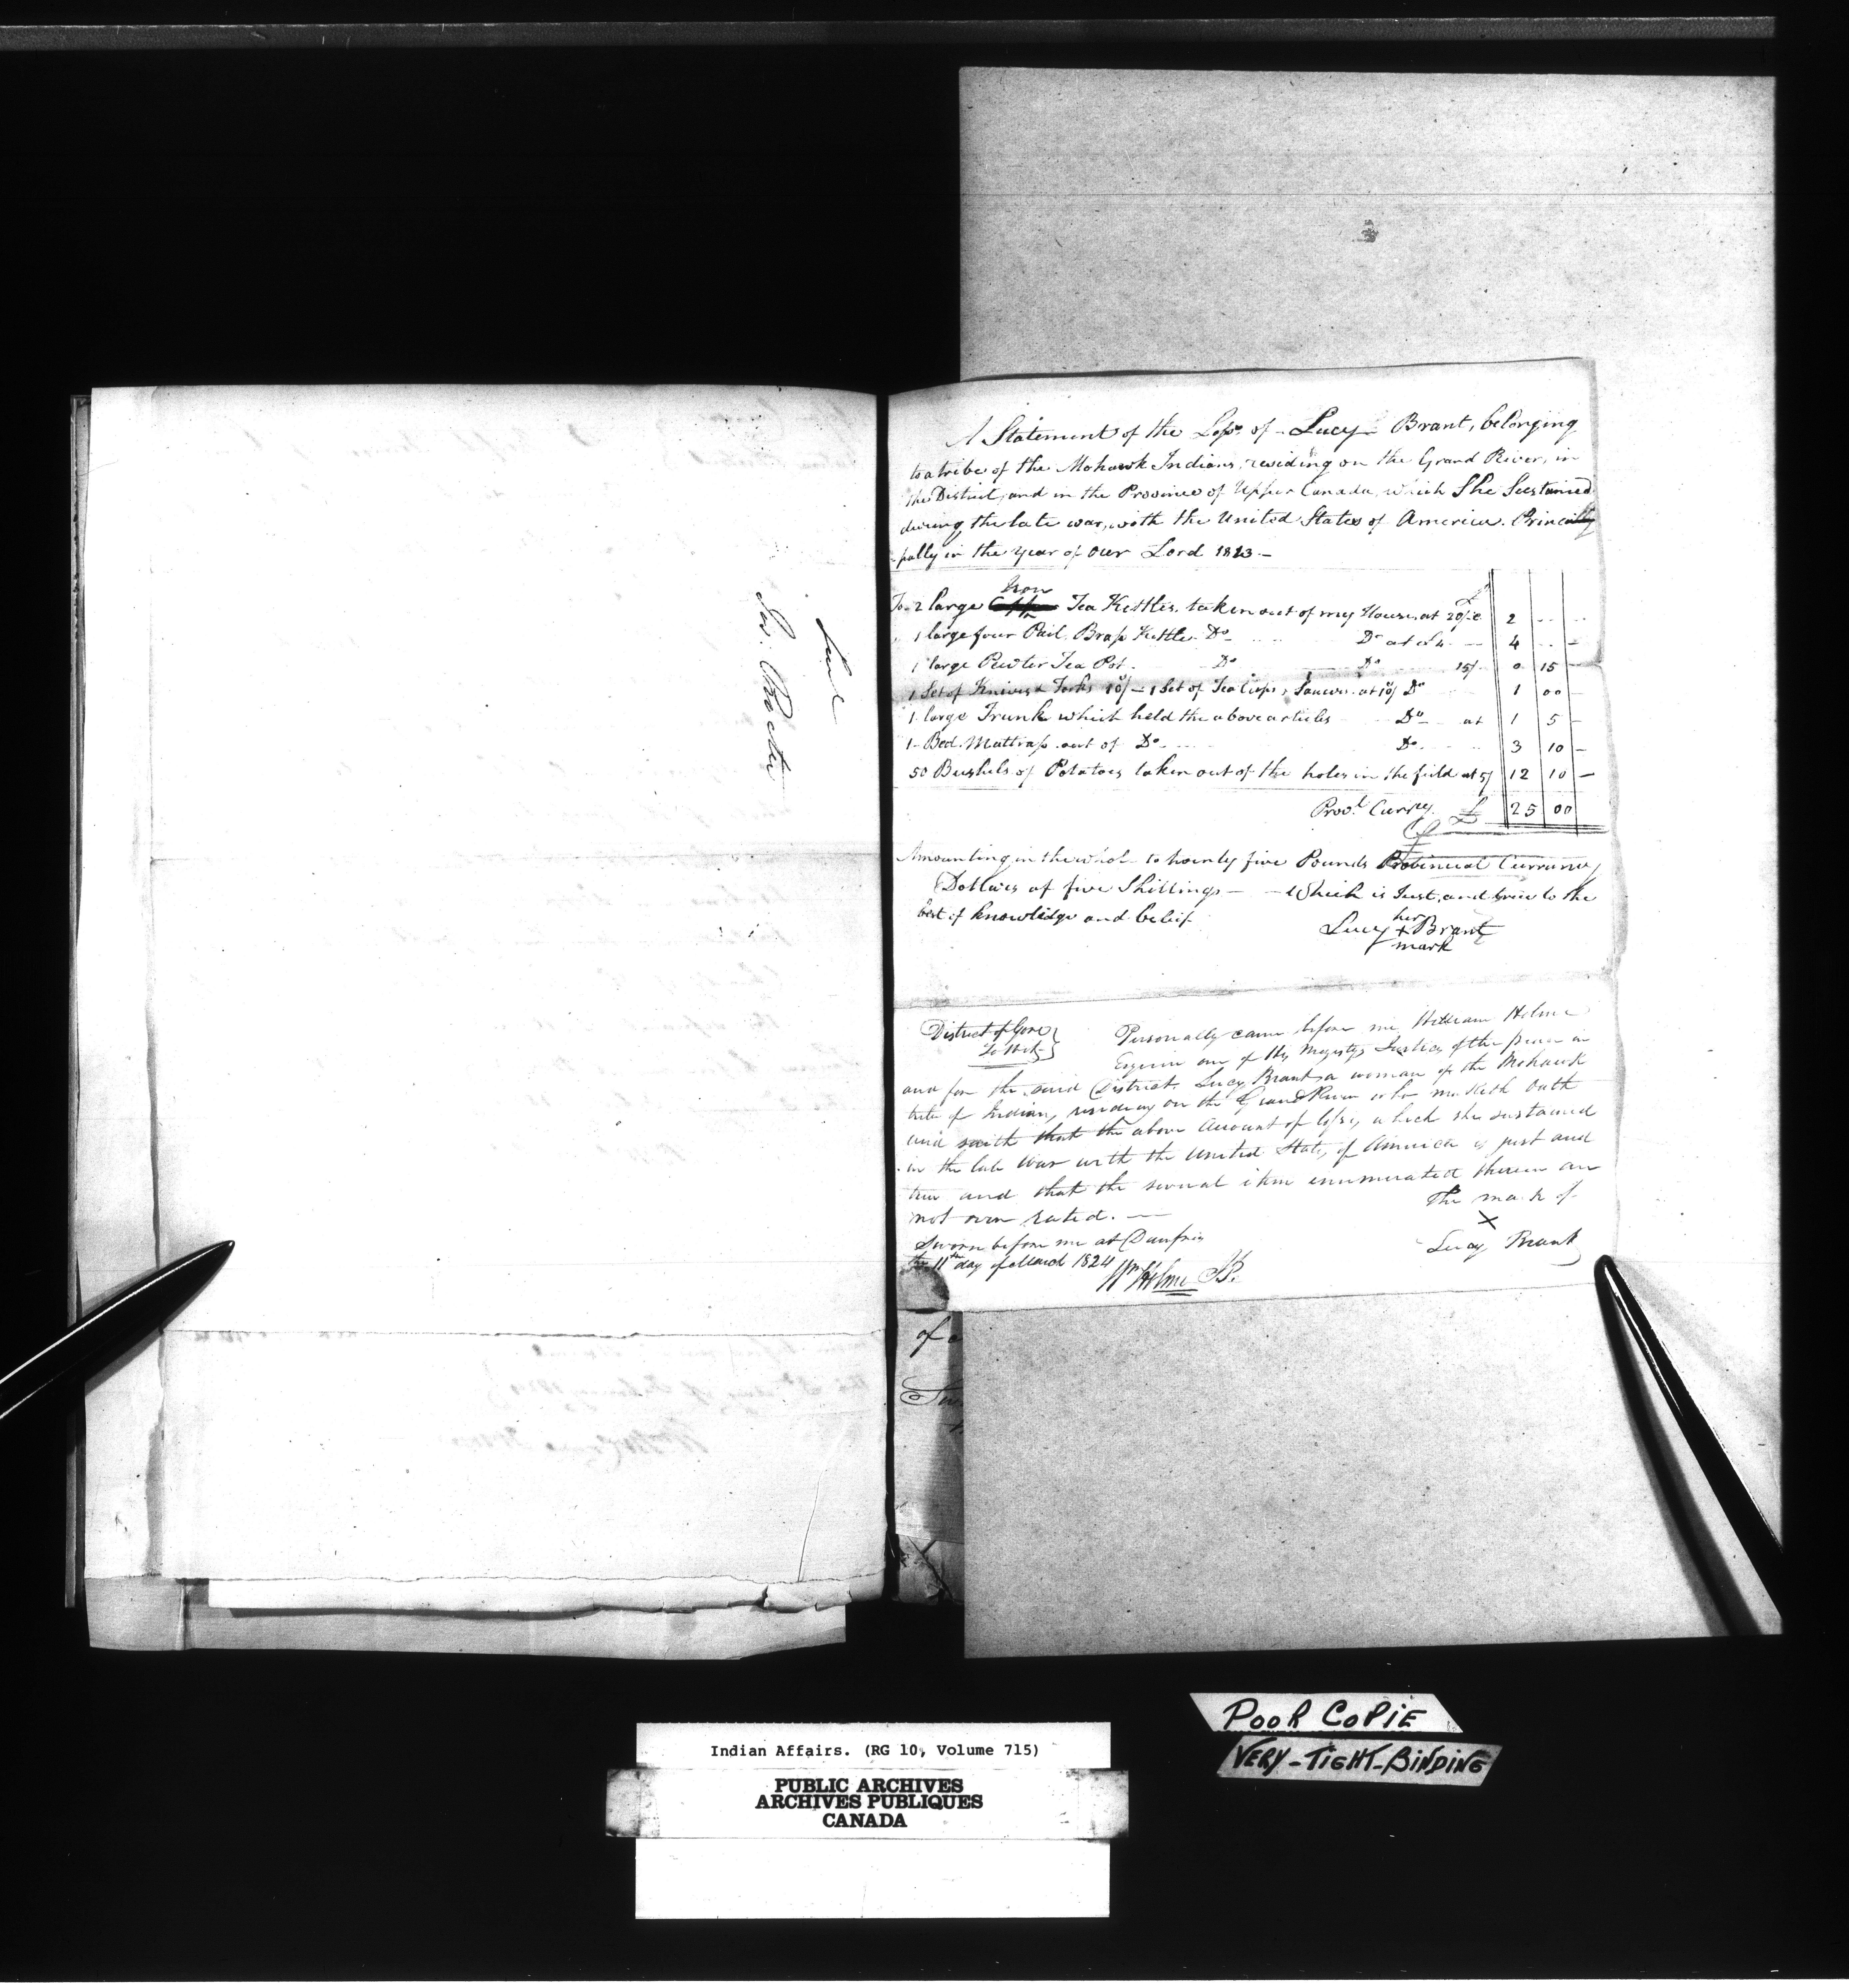 A Statement of the Loss of Lucy Brant, belonging
to a tribe of the Mohawk Indians, residing on the Grand River, in
the District, and in the Province of Upper Canada, which She Sustained
during the late war, with the United States of America. Princi
-pally in the year of our Lord 1813 -
To 2 large Iron Tea Kettles, taken out of my House, at 20/ 2 .. ..
" 1 large four Pail Brass Kettle Do .... Do at £4 .. 4 .. -
1 large Pewter Tea Pot. Do Do 15/- 0 15 -
1 Set of Knives & Forks 10/ - 1 Set of Tea Cups & Saucers at 10/ Do 1 00 -
1 large Trunk which held the above articles Do at 1 5 -
1 - Bed Mattrass out of Do Do 3 10 -
50 Bushels of Potatoes taken out of the holes in the field at 5/ 12 10 -
Provl. Curry. £ 25 00
Amounting in the whole to twenty five Pounds Provincial Currency
Dollars at five Shillings - - Which is Just, and true to the
best of knowledge and belief
her
Lucy + Brant
mark
District of Gore }
To Wit }
Personally came before me William Holme
Esquire one of His Majestys Justices of the peace in
and for the said District. Lucy Brant, a woman of the Mohawk
tribe of Indians, residing on the Grand River who maketh Oath
and saith that the above Account of losses, which she sustained
in the late War with the United States of America is just and
true and that the several items enumerated therein are
not over rated. -
The mark of
X
Lucy Brant
Sworn before me at Dumfries
the 11th day of March 1824
Wm Holme JP.
of
POOR COPIE
VERY-TIGHT-BINDING
Indian Affairs. (RG 10, Volume 715)
PUBLIC ARCHIVES
ARCHIVES PUBLIQUES
CANADA